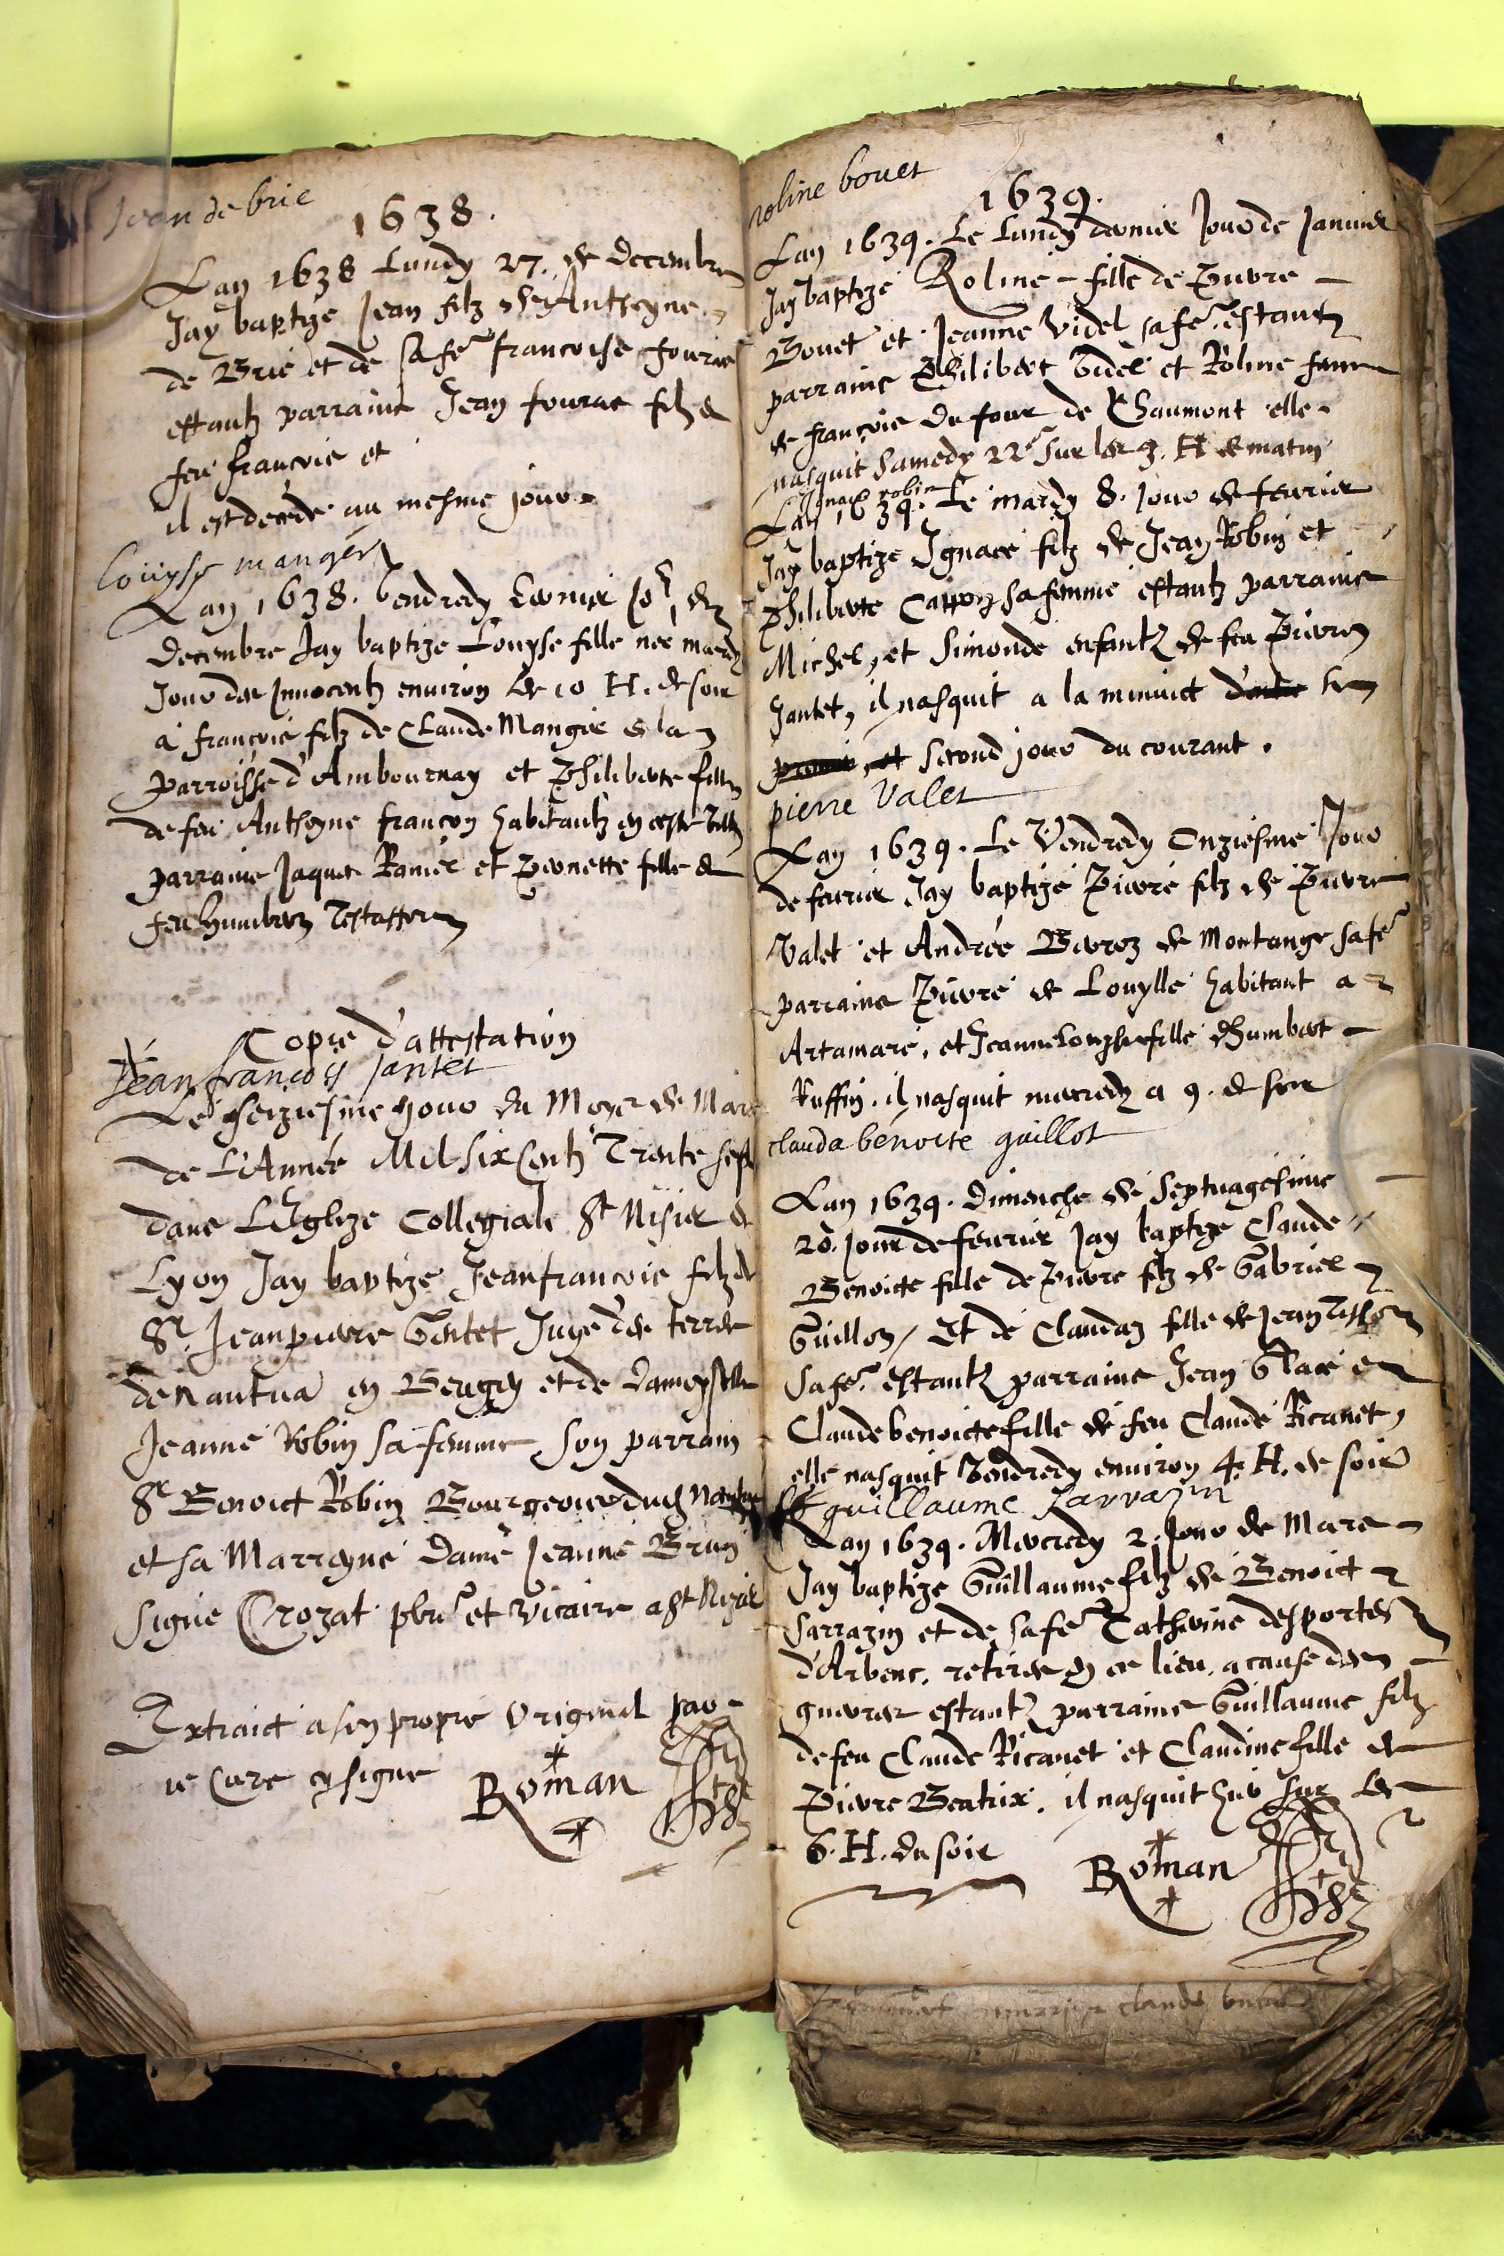 Jean de brie
1638.
Lan 1638 Lundy 27. de decembre
Jay baptize Jean filz d'Anthoyne
de Brie et de sa fe francoise fourie
estantz parrains Jean fourat filz de
feu francois et
il est decede au mesme jour
Louyse mangier
Lan 1638. Vendredy dernier jor de
decembre Jay baptize Louyse fille nee mardy
Jour des Innocentz environ les 10 H. de soir
a francois filz de Claude Mangier de la
parroisse d'Ambournay et Philiberte fille
de feu Anthoyne francon habitantz en ceste ville
parrains Jaques Ramel et Pernette fille de
feu Humbert
Copie d'attestation
Jean francois Jantet
Le seiziesme jour du Moys de Mars
de L'Année Mil six centz Trente sept
dans L'Eglize Collegiale St Nisier de
Lyon Jay baptize Jeanfrancois filz de
Sr. Jean pierre Gentet Juge des terres
de Nantua en Beugey et de damoyselle
Jeanne Robin sa femme, son parrain
Sr Benoict Robin Bourgeois dudt Nantua
et sa Marrayne dame Jeanne Brun
signe Crozat pbre et vicaire a St Nizier
Extraict a son propre Original par
le Cure cy signe Roman
roline bouet
1639.
Lan 1639. Le Lundy dernier Jour de Janvier
Jay baptizé Roline fille de Pierre
Bouet et Jeanne Videl sa fe. estantz
parrains Philibert Videl et Roline feme
de françois du four de Chaumont elle
nasquit samedy 22e sur les 3. H de matin
Ignace robin
Lan 1639. Le mardy 8. jour de fevrier
Jay baptize Ignace filz de Jean Robin et
Philiberte Catton sa femme estantz parrains
Michel, et Simonde enfantz de feu Pierre
Jantet, il nasquit a la minuict
second jour du courant.
pierre Valet
Lan 1639. Le Vendredy Onziesme Jour
de fevrier Jay baptizé Pierre filz de Pierre
Valet et Andrée Berroz de Montange sa fe
parrains Pierre de Louylle habitant a
Artamare, et Jeanne Louyse fille d'humbert
Ruffin. il nasquit mercredy a 9. de soir
clauda benoite guillot
Lan 1639. Dimenche de Septuagesime
20. jour de fevrier Jay baptize Claude
Benoicte fille de Pierre filz de Gabriel
Guillon, Et de Claudaz fille de Jean
sa fe. estantz parrains Jean Glace et
Claude benoicte fille de feu Claude Ricanet,
elle nasquit Vendredy environ 4. H. de soir
guillaume Sarrazin
Lan 1639. Mercredy 2. Jour de Mars
Jay baptize Guillaume filz de Benoict
Sarrazin et de sa fe Catherine desportes
d'Arbenc, retires en ce lieu, a cause des
guerres estantz parrains Guillaume filz
de feu Claude Ricanet et Claudine fille de
Pierre Beatrix. il nasquit hier sur les
6. H. du soir
Roman